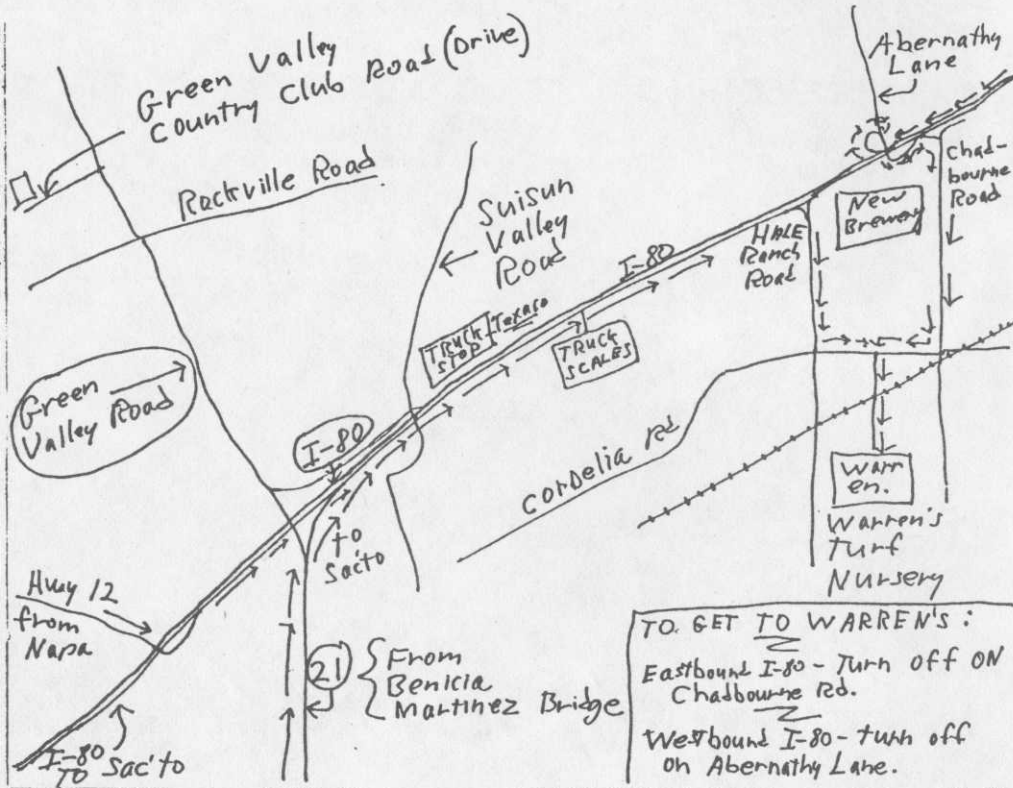 Green Valley
Country Club Road (Drive)
Abernathy
Lane
Rockville Road
Suisun
Valley
Road
Chad-
bourne
Road
New
Brewery
HALE
Ranch
Road
I-80
TRUCK
STOP
Texaco
TRUCK
SCALES
Green
Valley Road
I-80
Cordelia Rd.
to
Sac'to
Warr
en.
Warren's
Turf
Nursery
Hwy 12
from
Napa
21
From
Benicia
Martinez Bridge
I-80
TO Sac'to
TO GET TO WARREN'S:
Eastbound I-80 - Turn off ON
Chadbourne Rd.
Westbound I-80 - turn off
on Abernathy Lane.